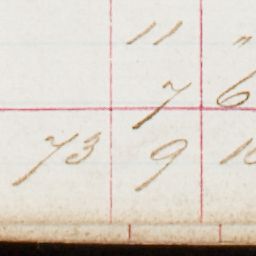 11 "
7 6
73 9